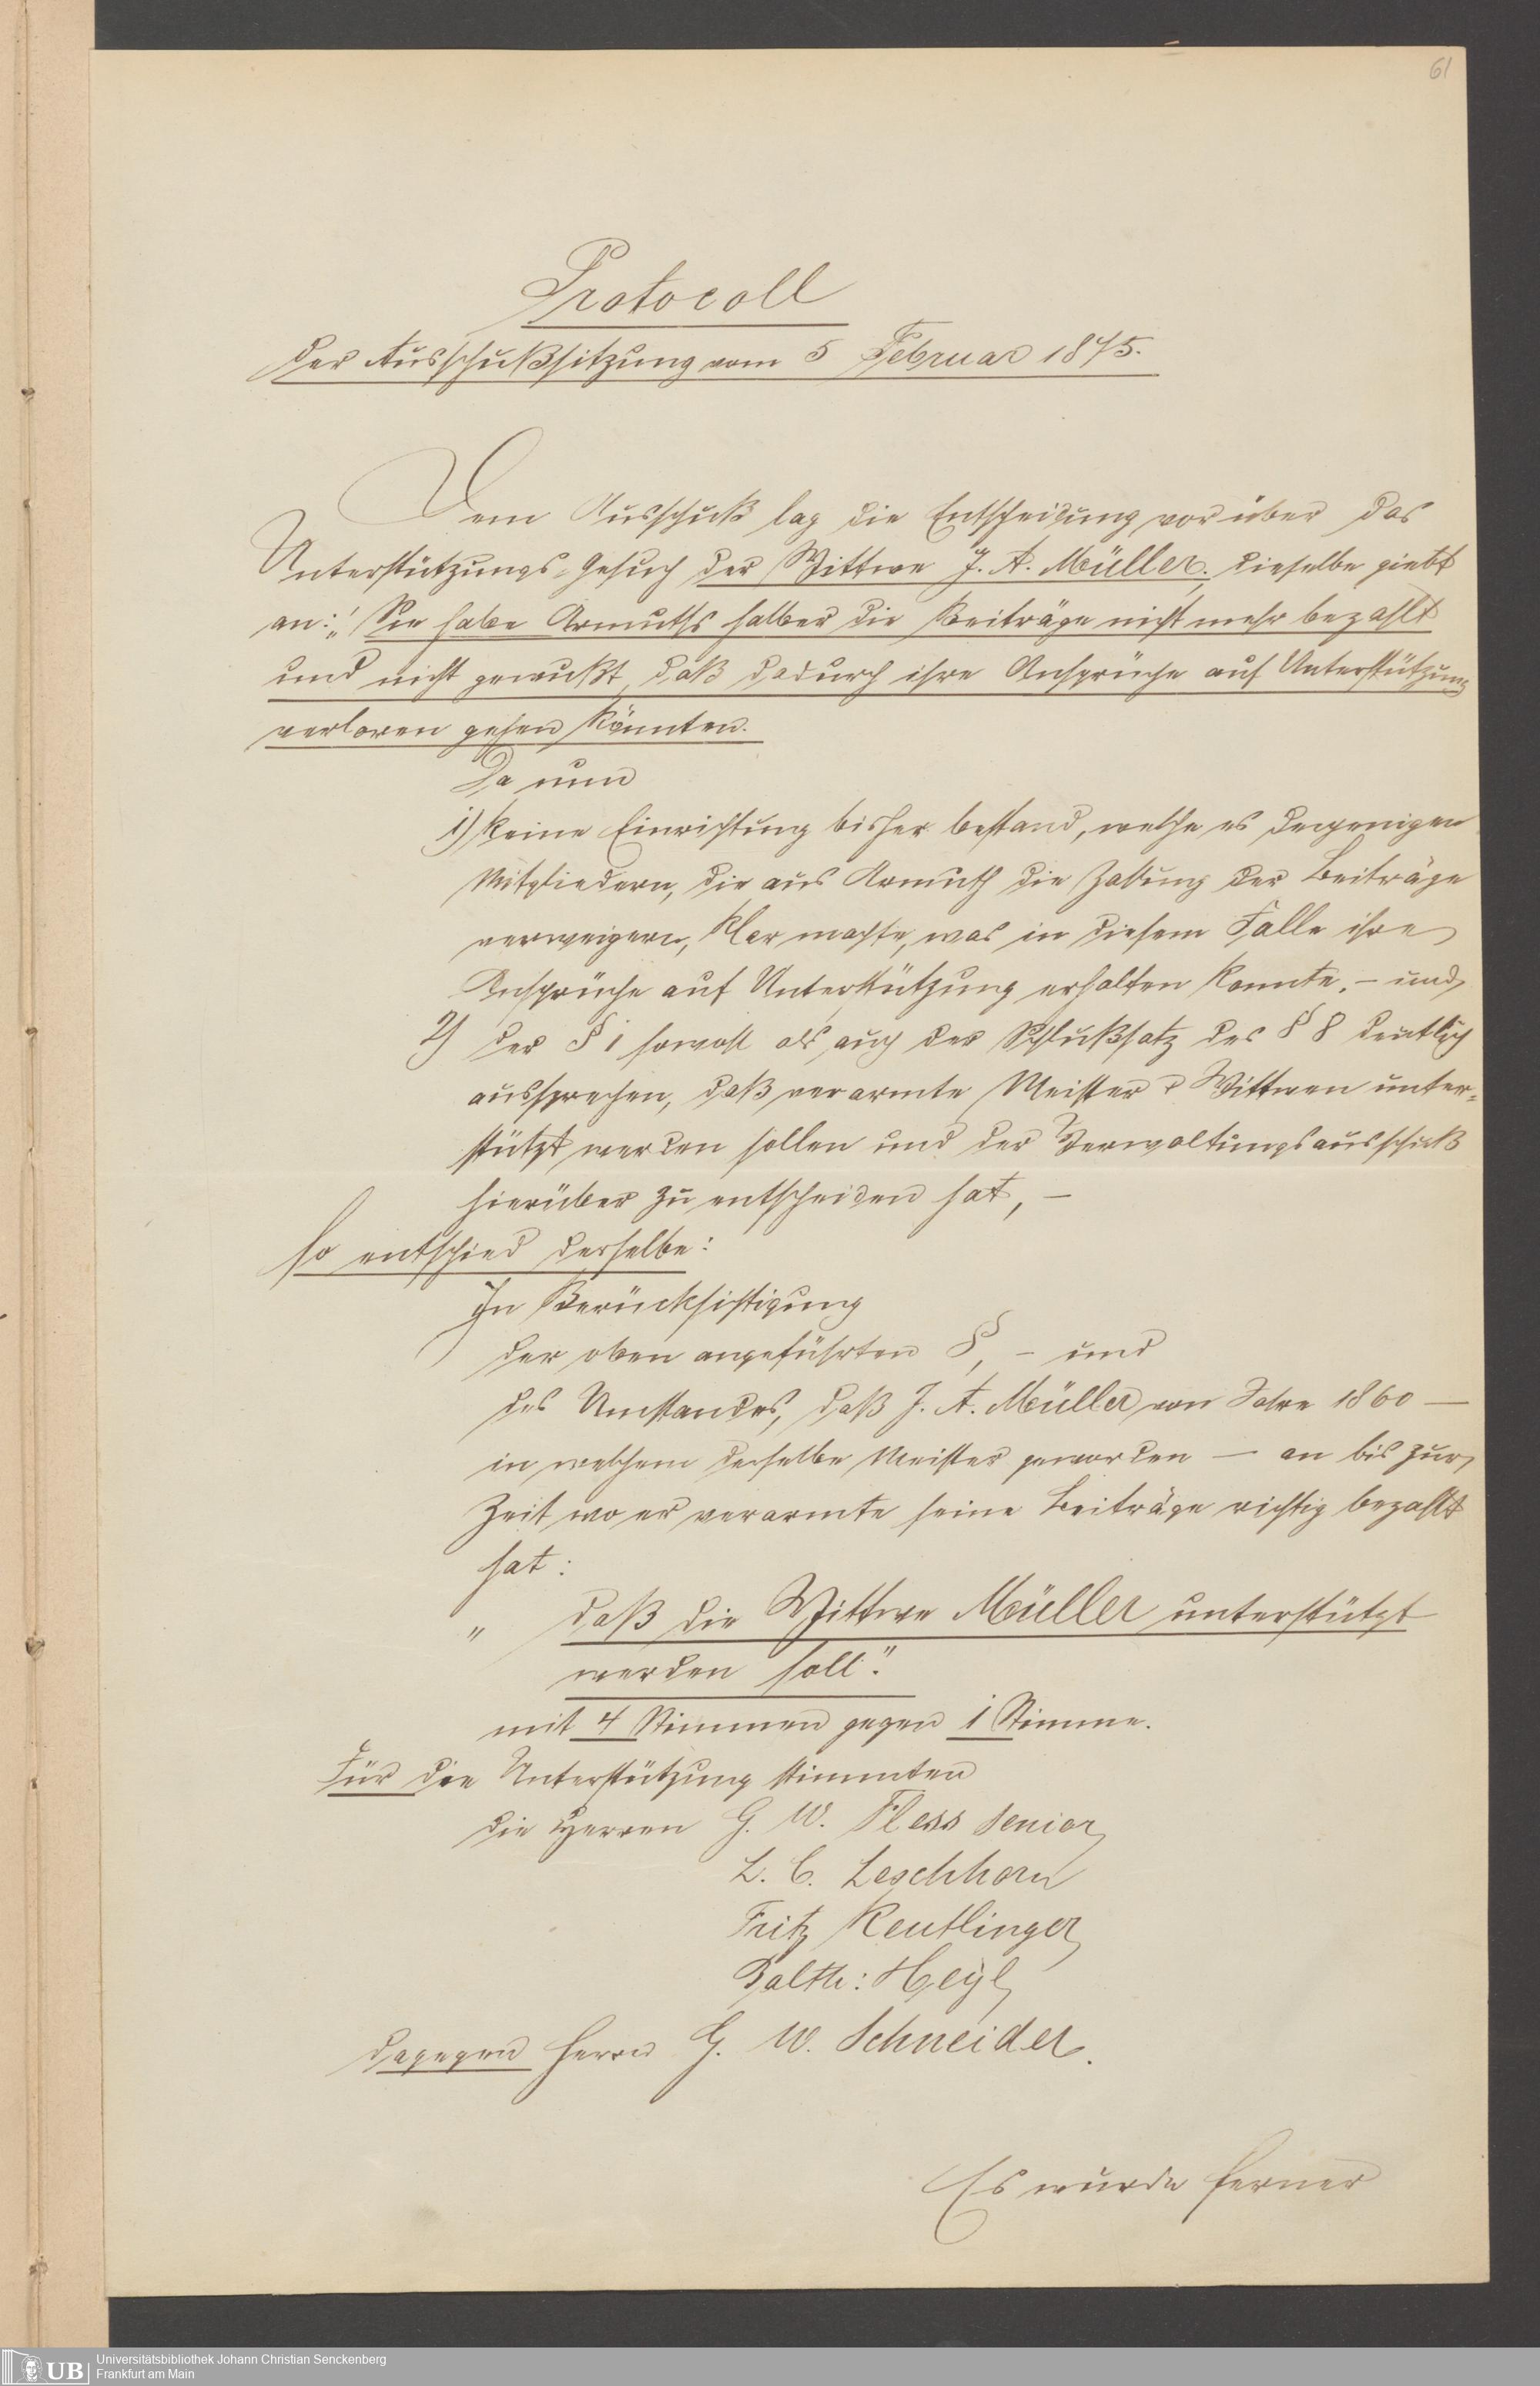 61
Protocoll
der Ausschußsitzung vom 5 Februar 1875.
Dem Ausschuß lag die Entscheidung vor über das
Unterstützungs-Gesuch der Wittwe J. A. Müller; dieselbe giebt
an: „Sie habe Armuths halber die Beiträge nicht mehr bezahlt
und nicht gewußt, daß dadurch ihre Ansprüche auf Unterstützung
verloren gehen könnten.
Da nun
1) keine Einrichtung bisher bestand, welche es denjenigen
Mitgliedern, die aus Armuth die Zalung der Beiträge
verweigern, klar machte, was in diesem Falle ihre
Ansprüche auf Unterstützung erhalten konnte, – und
2) der § 1 sowohl als auch der Schlußsatz des § 8 deutlich
aussprechen, daß verarmte Meister & Wittwen unter-
stützt werden sollen und der Verwaltungsausschuß
hierüber zu entscheiden hat, –
so entschied derselbe:
In Berücksichtigung
der oben angeführten §, – und
des Umstandes, daß J. A. Müller von Jahre 1860 –
in welchem derselbe Meister geworden – an bis zur
Zeit wo er verarmte seine Beiträge richtig bezahlt
hat:
„ daß die Wittwe Müller unterstützt
werden soll."
mit 4 Stimmen gegen 1 Stimme.
Für die Unterstützung stimmten
die Herren G. W. Fless Senior
L. C. Leschhorn
Fritz Reutlinger
Balth: Heyl
dagegen Herrn G. W. Schneider.
Es wurde ferner
UB
Universitätsbibliothek Johann Christian Senckenberg
Frankfurt am Main